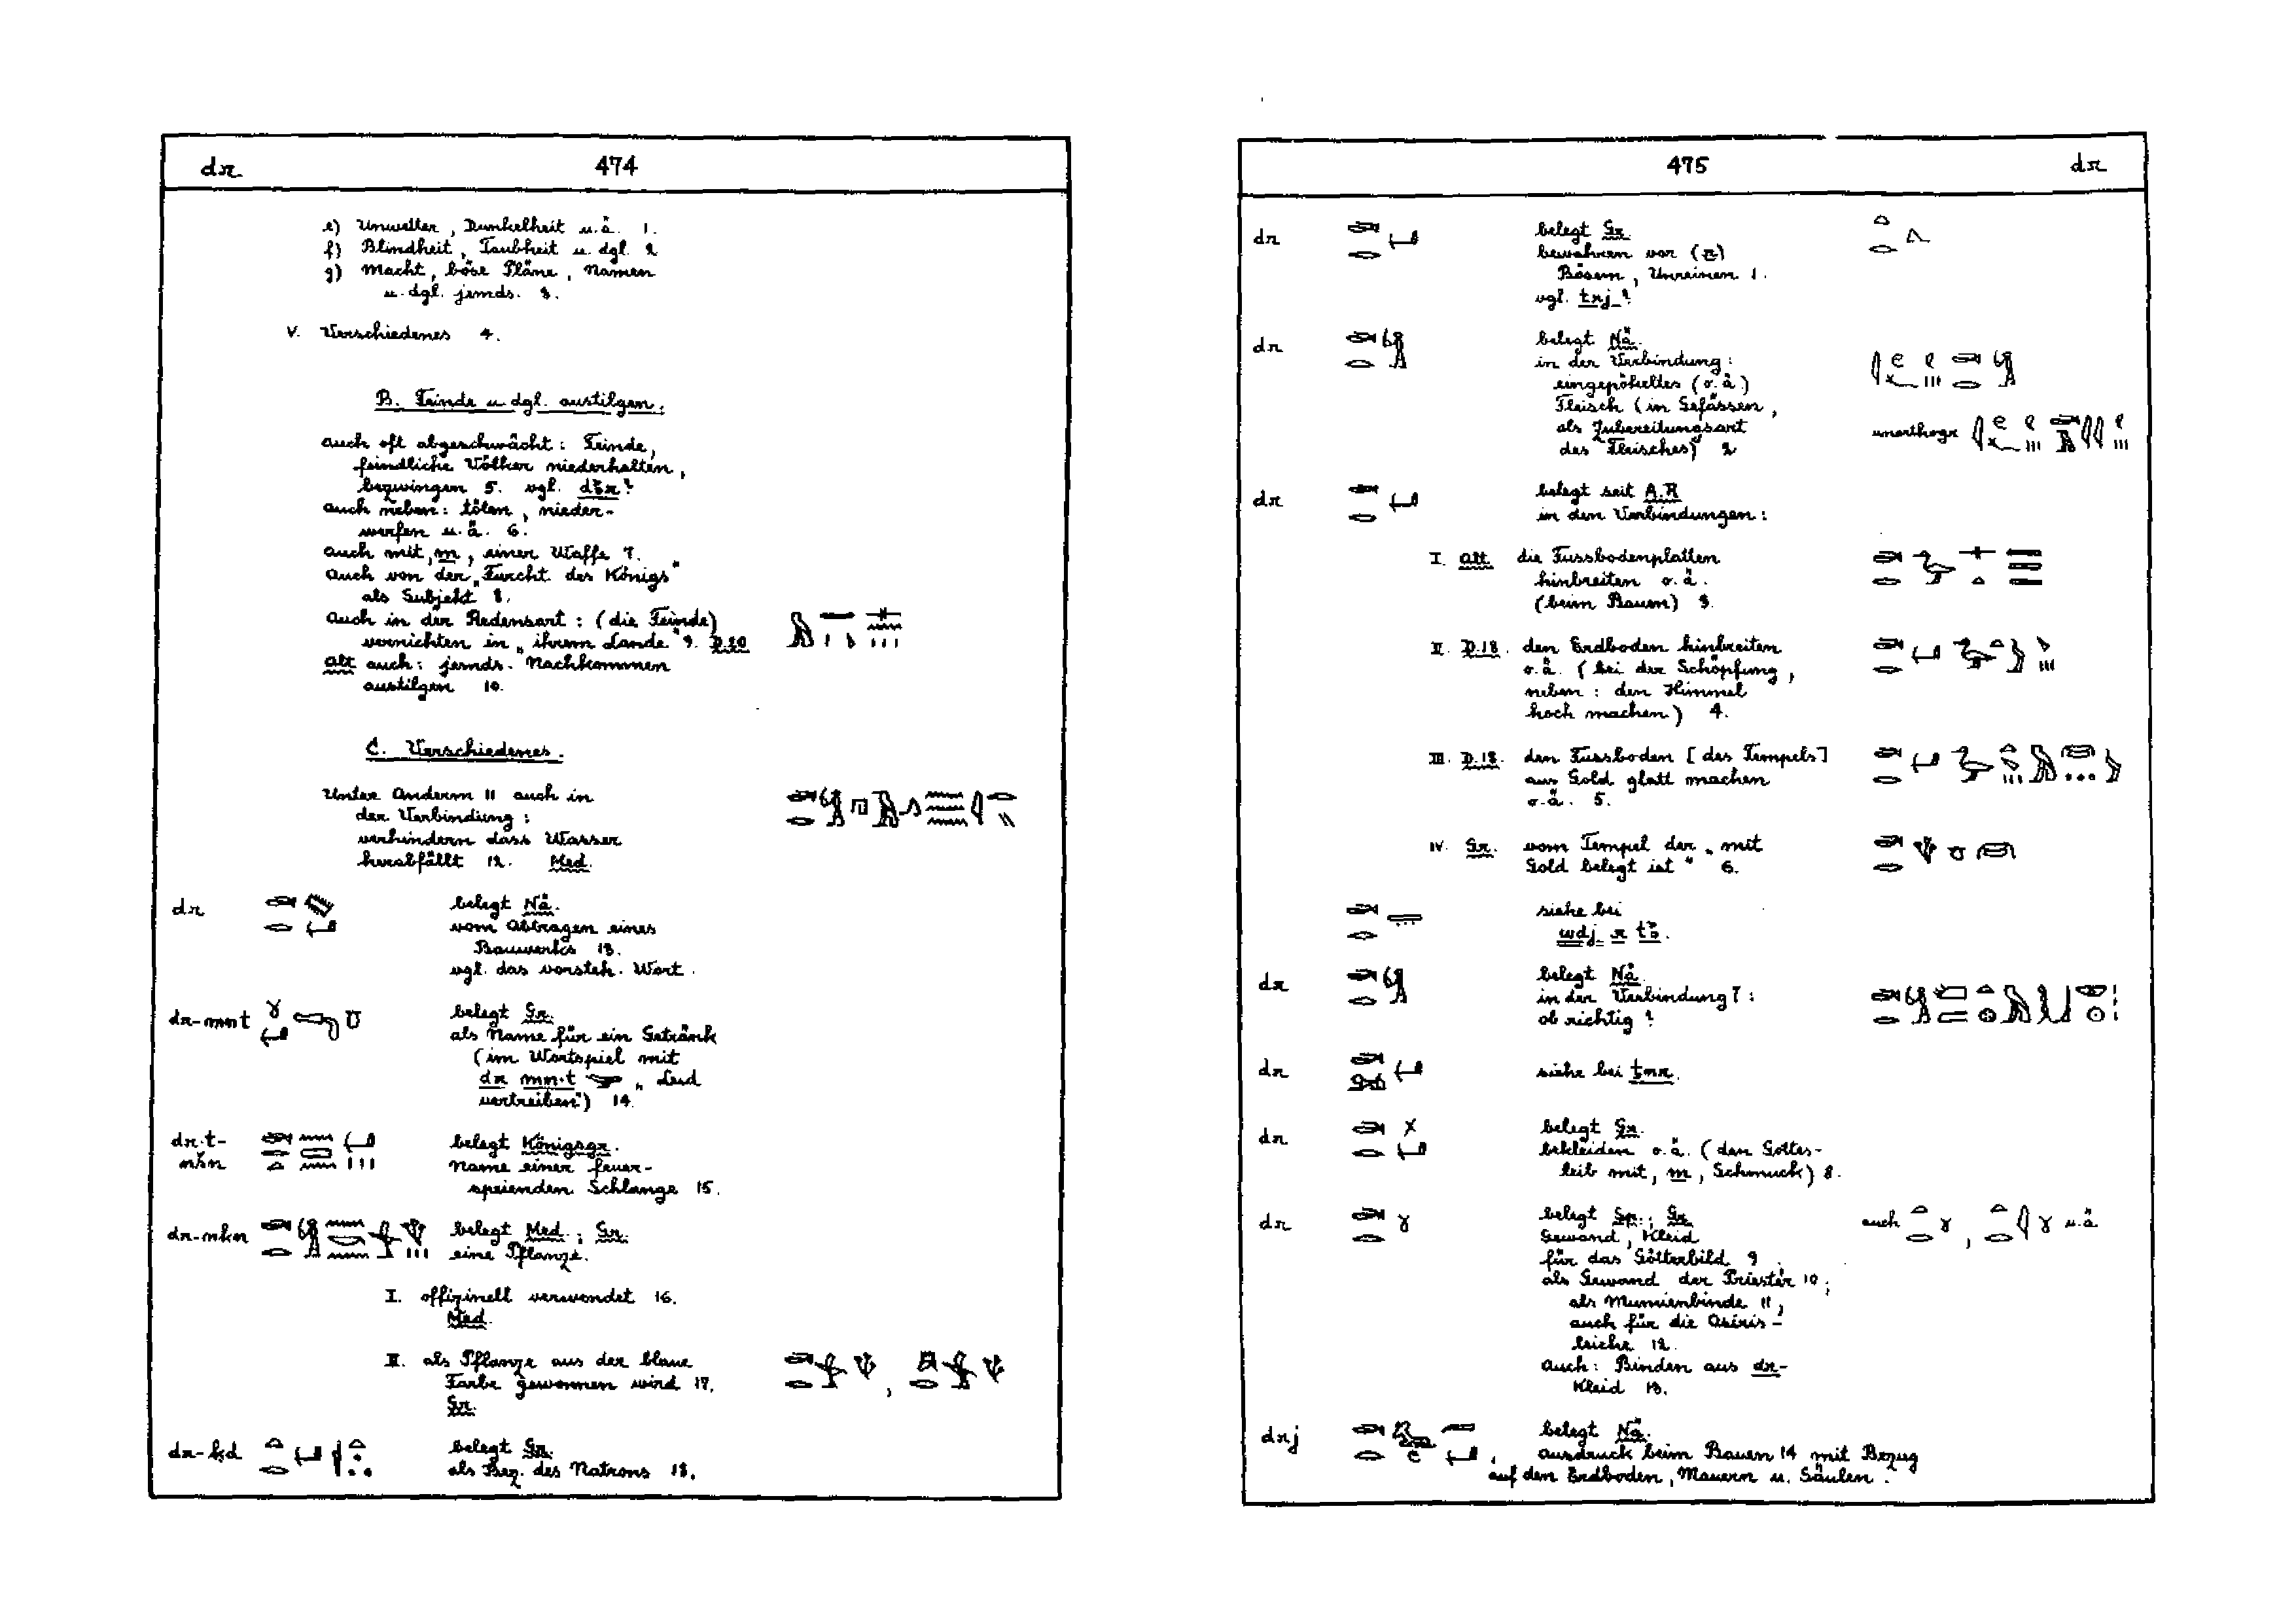 dr 474
e) Unwetter, Dunkelheit u.ä. 1.
f) Blindheit, Taubheit u. dgl. 2
g) Macht, böse Pläne, Namen
u. dgl. jemds. 3.
V. Verschiedenes 4.
B. Feinde u. dgl. austilgen.
auch oft abgeschwächt: Feinde,
feindliche Völker niederhalten,
bezwingen 5. vgl. dꜣr?
auch neben: töten, nieder-
werfen u.ä. 6.
auch mit, m, einer Waffe 7.
auch von der „Furcht des Königs"
als Subjekt 8.
auch in der Redensart: (die Feinde)
vernichten in „ihrem Lande" 9. D.20
Alt auch: jemds. Nachkommen
austilgen 10.
C. Verschiedenes.
Unter Anderm 11 auch in
der Verbindung:
verhindern dass Wasser
herabfällt 12. Med.
dr belegt Nä.
vom Abtragen eines
Bauwerks 13.
vgl. das vorsteh. Wort.
dr-mnt belegt Gr.
als Name für ein Getränk
(im Wortspiel mit
dr mn·t „Leid
vertreiben") 14.
dr·t-nšn belegt Königsgr.
Name einer feuer-
speienden Schlange 15.
dr-nkn belegt Med.; Gr.
eine Pflanze.
I. offizinell verwendet 16.
Med.
II. als Pflanze aus der blaue
Farbe gewonnen wird 17.
Gr.
dr-ḳd belegt Gr.
als Bez. des Natrons 18.
475 dr
dr belegt Gr.
bewahren vor (r)
Bösem, Unreinen 1.
vgl. trj?
dr belegt Nä.
in der Verbindung:
eingepökeltes (o.ä.)
Fleisch (in Gefässen,
als Zubereitungsart
des Fleisches) 2
unorthogr
dr belegt seit A.R
in den Verbindungen:
I. Alt. die Fussbodenplatten
hinbreiten o.ä.
(beim Bauen) 3.
II. D.18. den Erdboden hinbreiten
o.ä. (bei der Schöpfung,
neben: den Himmel
hoch machen) 4.
III. D.18. den Fussboden [des Tempels]
aus Gold glatt machen
o.ä. 5.
IV. Gr. vom Tempel der „mit
Gold belegt ist" 6.
siehe bei
wdj r tꜣ.
dr belegt Nä.
in der Verbindung 7:
ob richtig?
dr siehe bei
dr belegt Gr.
bekleiden o.ä. (den Gottes-
leib mit, m, Schmuck) 8.
dr belegt Sp.; Gr. auch , u.ä
Gewand, Kleid
für das Götterbild 9
als Gewand der Priester 10;
als Mumienbinde 11,
auch für die Osiris-
leiche 12.
Auch: Binden aus dr-
Kleid 13.
drj belegt Nä.
Ausdruck beim Bauen 14 mit Bezug
auf den Erdboden, Mauern u. Säulen.